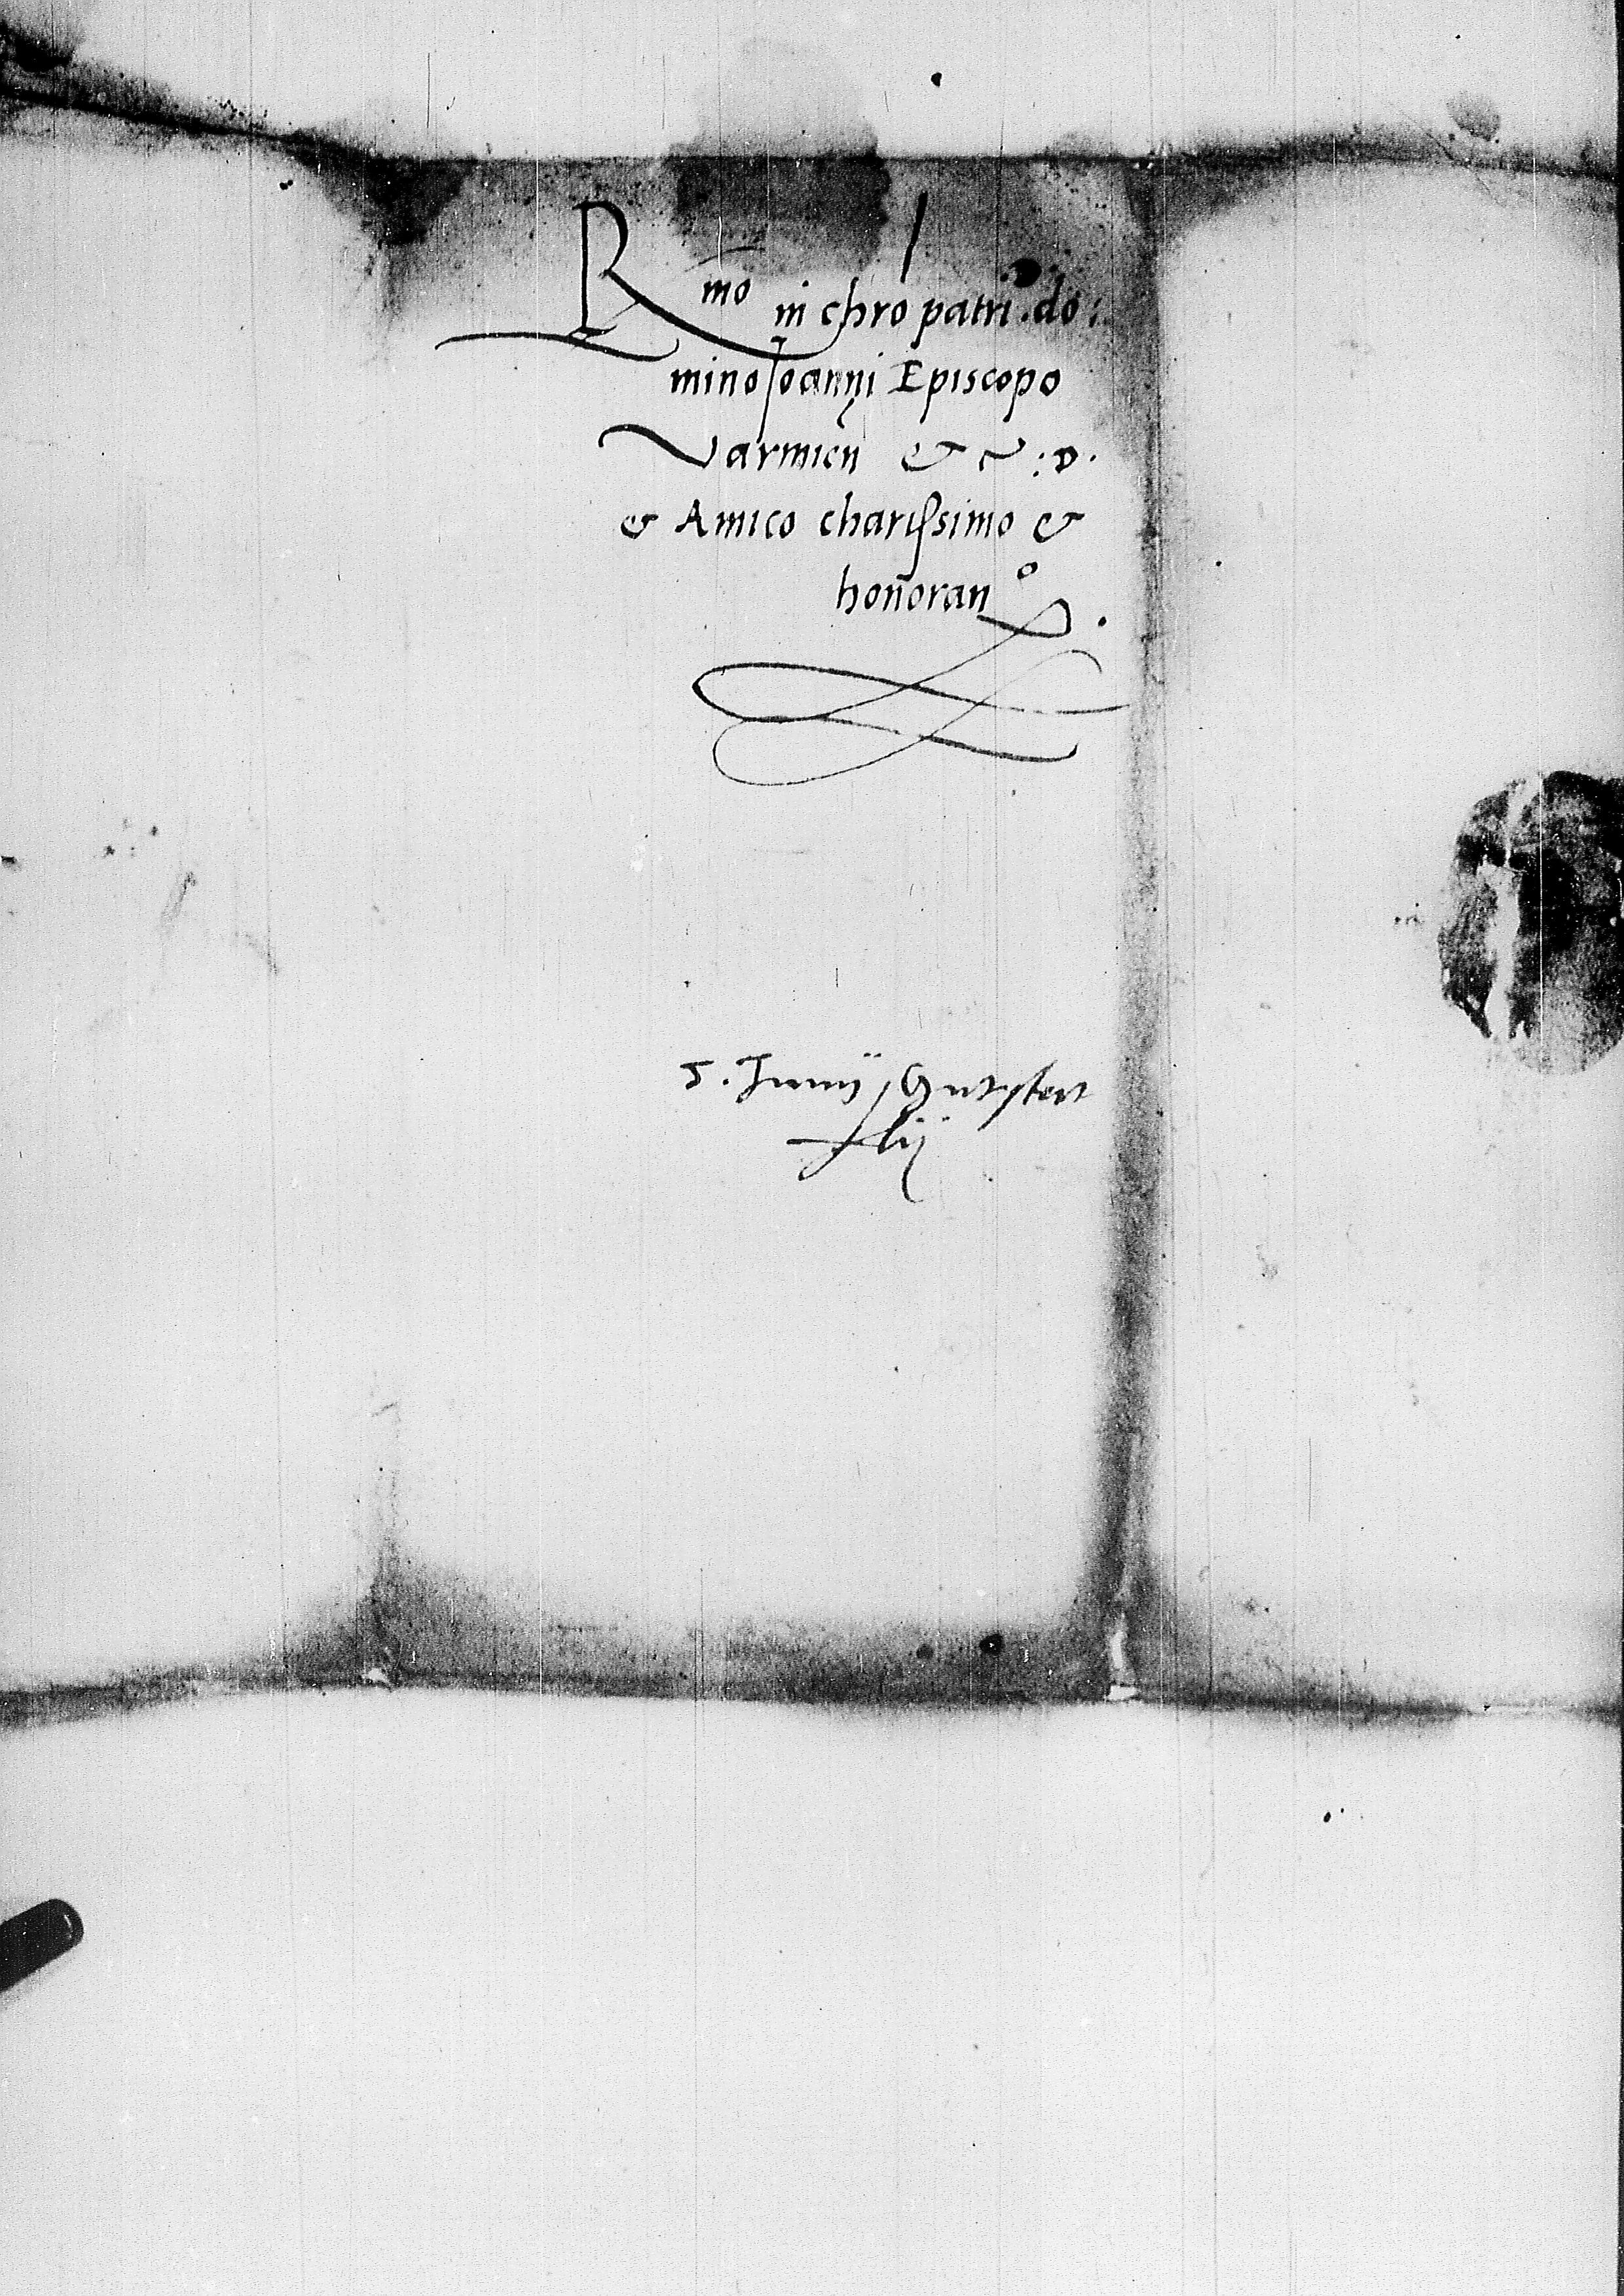 Rmo in chro patri do:
mino Joanni Episcopo
Varmien & c: D.
& Amico charissimo &
honoran o.
5. Junij